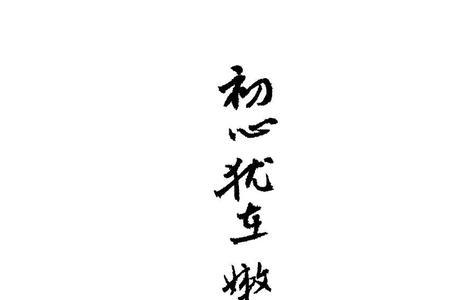 初心犹在嫩